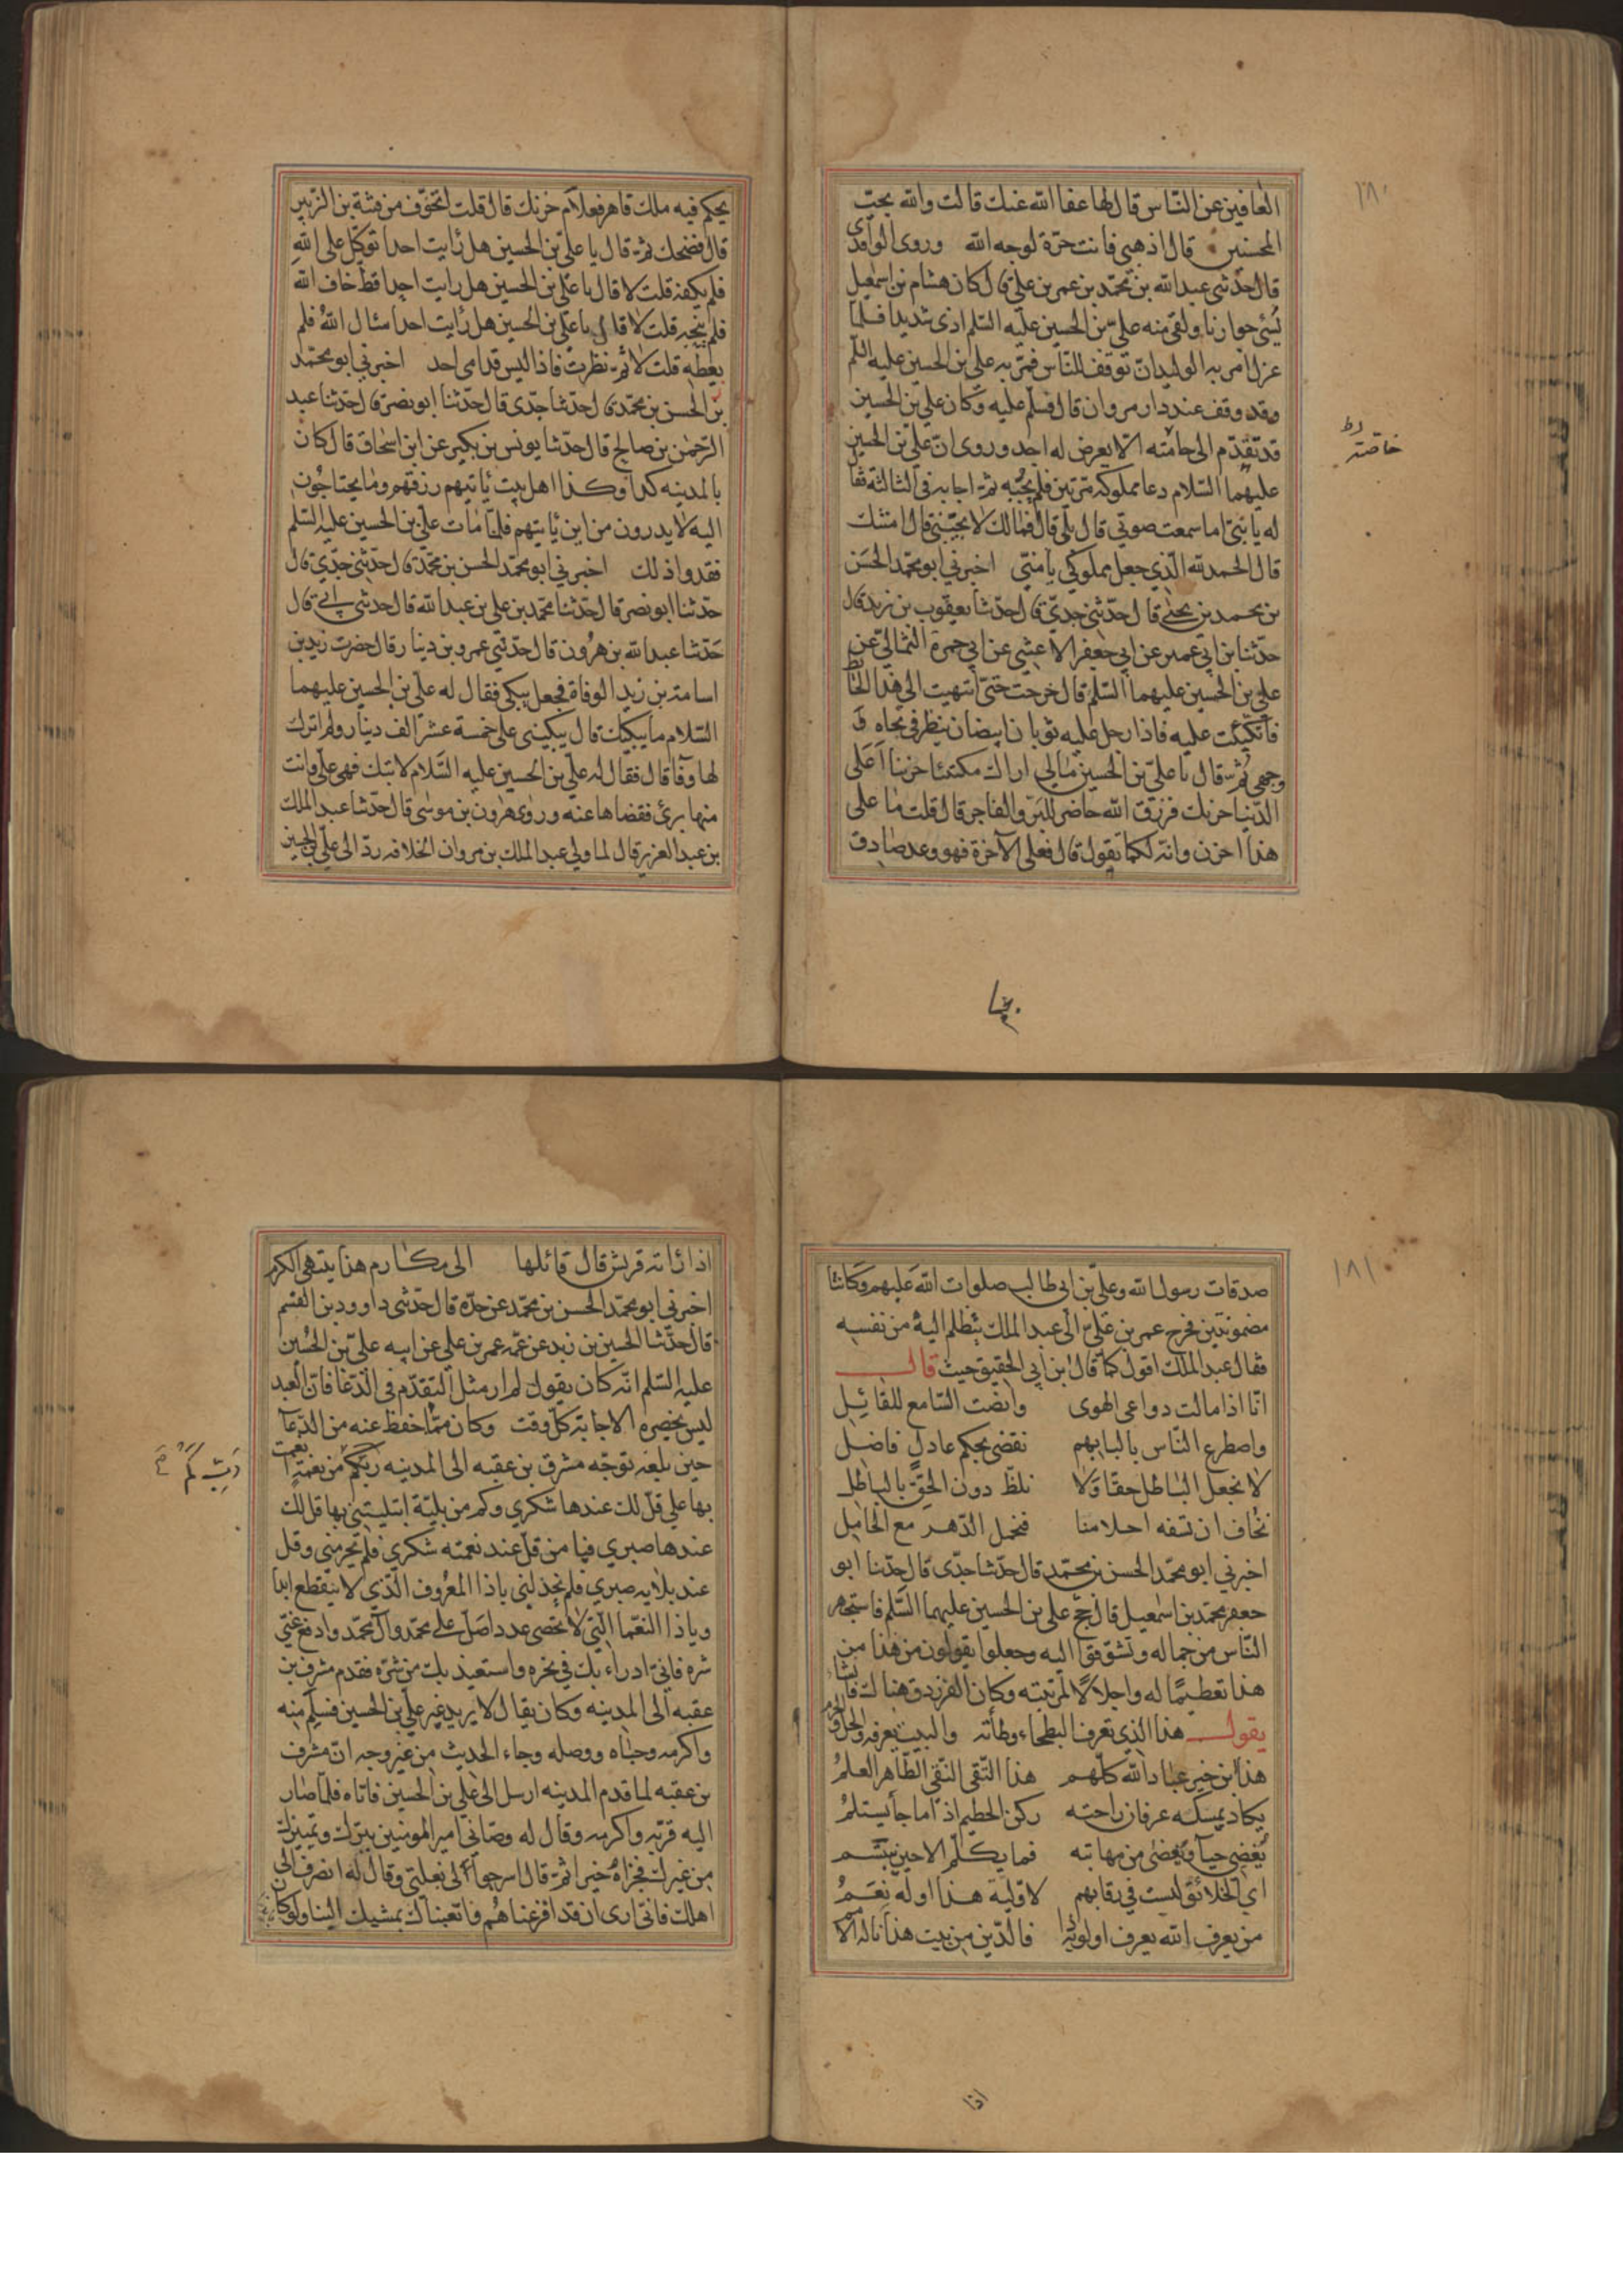 ١٨٠
العافين عن النّاس قال لها عفا الله عنك قالت والله يحبّ
المحسنين قال اذهبى فانت حرّة لوجه الله وروى الواقدى
قال حدّثنى عبدالله بن محمّد بن عمر بن علىّ قال كان هشام بن اسمعيل
يسئ جوارنا ولقى منه علىّ بن الحسين عليه السّلم اذى شديدا فلمّا
عزل امر به الوليد ان توقف للنّاس فمرّ به على بن الحسين عليه السّلم
وقد وقف عند دار مروان قال فسلّم عليه وكان علىّ بن الحسين
قد تقدّم الى حامّته الّا يعرض له احد وروى انّ علىّ بن الحسين
خاصّته
عليهما السّلام دعا مملوكه مرّتين فلم يجبه ثمّ اجابه فى الثالثة فقال
له يا بنىّ اما سمعت صوتي قال بلى قال فمالك لا تجيبنى قال امنتك
قال الحمد لله الّذي جعل مملوكي يامننى اخبرني ابو محمّد الحسن
بن محمد بن يحيى قال حدّثنى جدىّ قال حدّثنا يعقوب بن يزيد قال
حدّثنا بن ابي عمير عن ابي جعفر الاعشى عن ابي حمزة الثمالىّ عن
علي بن الحسين عليهما السّلم قال خرجت حتىّ انتهيت الى هذا الحائط
فاتكيت عليه فاذا رجل عليه ثوبان ابيضان ينظر في تجاه
وجهى ثمّ قال يا علىّ بن الحسين مالي اراك مكتئبا حزينا اعلى
الدّنيا حزنك فرزق الله حاضر للبرّ والفاجر قال قلت ما على
هذا احزن وانّه لكما تقول قال فعلى الآخرة فهو وعد صادق
يحكم فيه ملك قاهر فعلام حزنك قال قلت اتخوّف من فتنة بن الزّبير
قال فضحك ثمّ قال يا علىّ بن الحسين هل رايت احدا توكّل على الله
فلم يكفه قلت لا قال يا علىّ بن الحسين هل رايت احدا قطّ خاف الله
فلم ينجه قلت لا قال يا علىّ بن الحسين هل رايت احدا سئال الله فلم
يعطه قلت لا ثمّ نظرت فاذا ليس قدامى احد اخبرني ابو محمّد
بن الحسن بن محمّد قال حدّثنا جدّى قال حدّثنا ابو نصر قال حدّثنا عبد
الرّحمن بن صالح قال حدّثنا يونس بن بكير عن ابن اسحاق قال كان
بالمدينه كذا وكذا اهل بيت ياتيهم رزقهم وما يحتاجون
اليه لا يدرون من اين ياتيهم فلمّا مات على بن الحسين عليه السّلم
فقدوا ذلك اخبرني ابو محمّد الحسن بن محمّد قال حدّثنى جدّي قال
حدّثنا ابو نصر قال حدّثنا محمّد بن علي بن عبد الله قال حدثنى ابى قال
حدّثنا عبد الله بن هرون قال حدّثنى عمرو بن دينار قال حضرت زيد بن
اسامة بن زيد الوفاة فجعل يبكى فقال له على بن الحسين عليهما
السّلام ما يبكيك قال يبكينى على خمسة عشر الف دينار ولم اترك
لها وفآ قال فقال له علىّ بن الحسين عليه السّلام لا تبك فهى علىّ وانت
منها برئ فقضاها عنه وروى هرون بن موسى قال حدّثنا عبد الملك
بن عبد العزيز قال لما ولى عبد الملك بن مروان الخلافه ردّ الى علىّ بن الحسين
١٨١
صدقات رسول الله وعلىّ بن ابى طالب صلوات الله عليهم وكانتا
مضمونتين فخرج عمر بن علىّ الى عبد الملك يتظلم اليه من نفسه
فقال عبد الملك اقول كما قال بن ابي الحقيق حيث قال
انّا اذا مالت دواعى الهوى وانصت السّامع للقائيل
واصطرع النّاس بالبابهم نقضى بحكم عادل فاضل
لا نجعل البّاطل حقّا ولا نلظّ دون الحقّ بالباطل
نخاف ان تسفه احلامنا فنخمل الدّهر مع الخامل
اخبرني ابو محمّد الحسن بن محمّد قال حدّثنا جدّى قال حدّثنا ابو
جعفر محمّد بن اسمعيل قال حجّ على بن الحسين عليهما السّلم فاستجهر
النّاس من جماله وتشوّفوا اليه وجعلوا يقولون من هذا من
هذا تعظيما له واجلالا لمرتبته وكان الفرزدق هناك فانشاء
يقول هذا الذي تعرف البطحاء وطأته والبيت يعرفه والحلّ والحرم
هذا بن خير عباد الله كلّهم هذا التّقى النقّى الطّاهر العلم
يكاد يمسكه عرفان راحته ركن الحطيم اذا ما جآ يستلم
يغضى حيآ ويغضى من مهابته فما يكلّم الاحين يبتسم
اي الخلائق ليست في رقابهم لاوّلية هذا اوله نعم
من يعرف الله يعرف اولويّة ذا فالدّين من بيت هذا ناله الامم
اذا
اذا راته قريش قال قائلها الى مكارم هذا ينتهى الكرم
اخبرني ابو محمّد الحسن بن محمّد عن جدّه قال حدّثنى داوود بن القسم
قال حدّثنا الحسين بن زيد عن عمّه عمر بن علي عن ابيه علىّ بن الحسين
عليه السّلم انّه كان يقول لم ار مثل التقدّم فى الدّعا فانّ العبد
ليس يحضره الاجابة كلّ وقت وكان ممّا حفظ عنه من الدّعآ
حين بلغه توجّه مشرف بن عقبه الى المدينه ربّ كم من نعمة انعمت
ربّ كم
بها علي قلّ لك عندها شكري وكم من بليّة ابتليتنى بها قلّ لك
عندها صبري فيا من قلّ عند نعمته شكري فلم يحرمنى وقل
عند بلايه صبري فلم يخذلنى ياذا المعروف الّذي لا ينقطع ابدا
وياذا النعّما الّتى لا تحصى عددا صلّ على محمّد وآل محمّد وادفع عنّي
شره فانىّ ادراء بك في نحره واستعيذ بك من شرّه فقدم مشرف بن
عقبه الى المدينه وكان يقال لا يريد غير علىّ بن الحسين فسلم منه
واكرمه وحباه ووصله وجاء الحديث من غير وجه انّ مشرف
بن عقبه لما قدم المدينه ارسل الى علي بن الحسين فاتاه فلمّا صار
اليه قرّبه واكرمه وقال له وصّاني امير المومنين ببرّك وتمييزك
من غيرك فجزاه خيرا ثمّ قال اسرجوا له بغلتى وقال له انصرف الى
اهلك فانّى ارى ان قد افزعناهم واتعبناك بمشيك الينا ولو كان